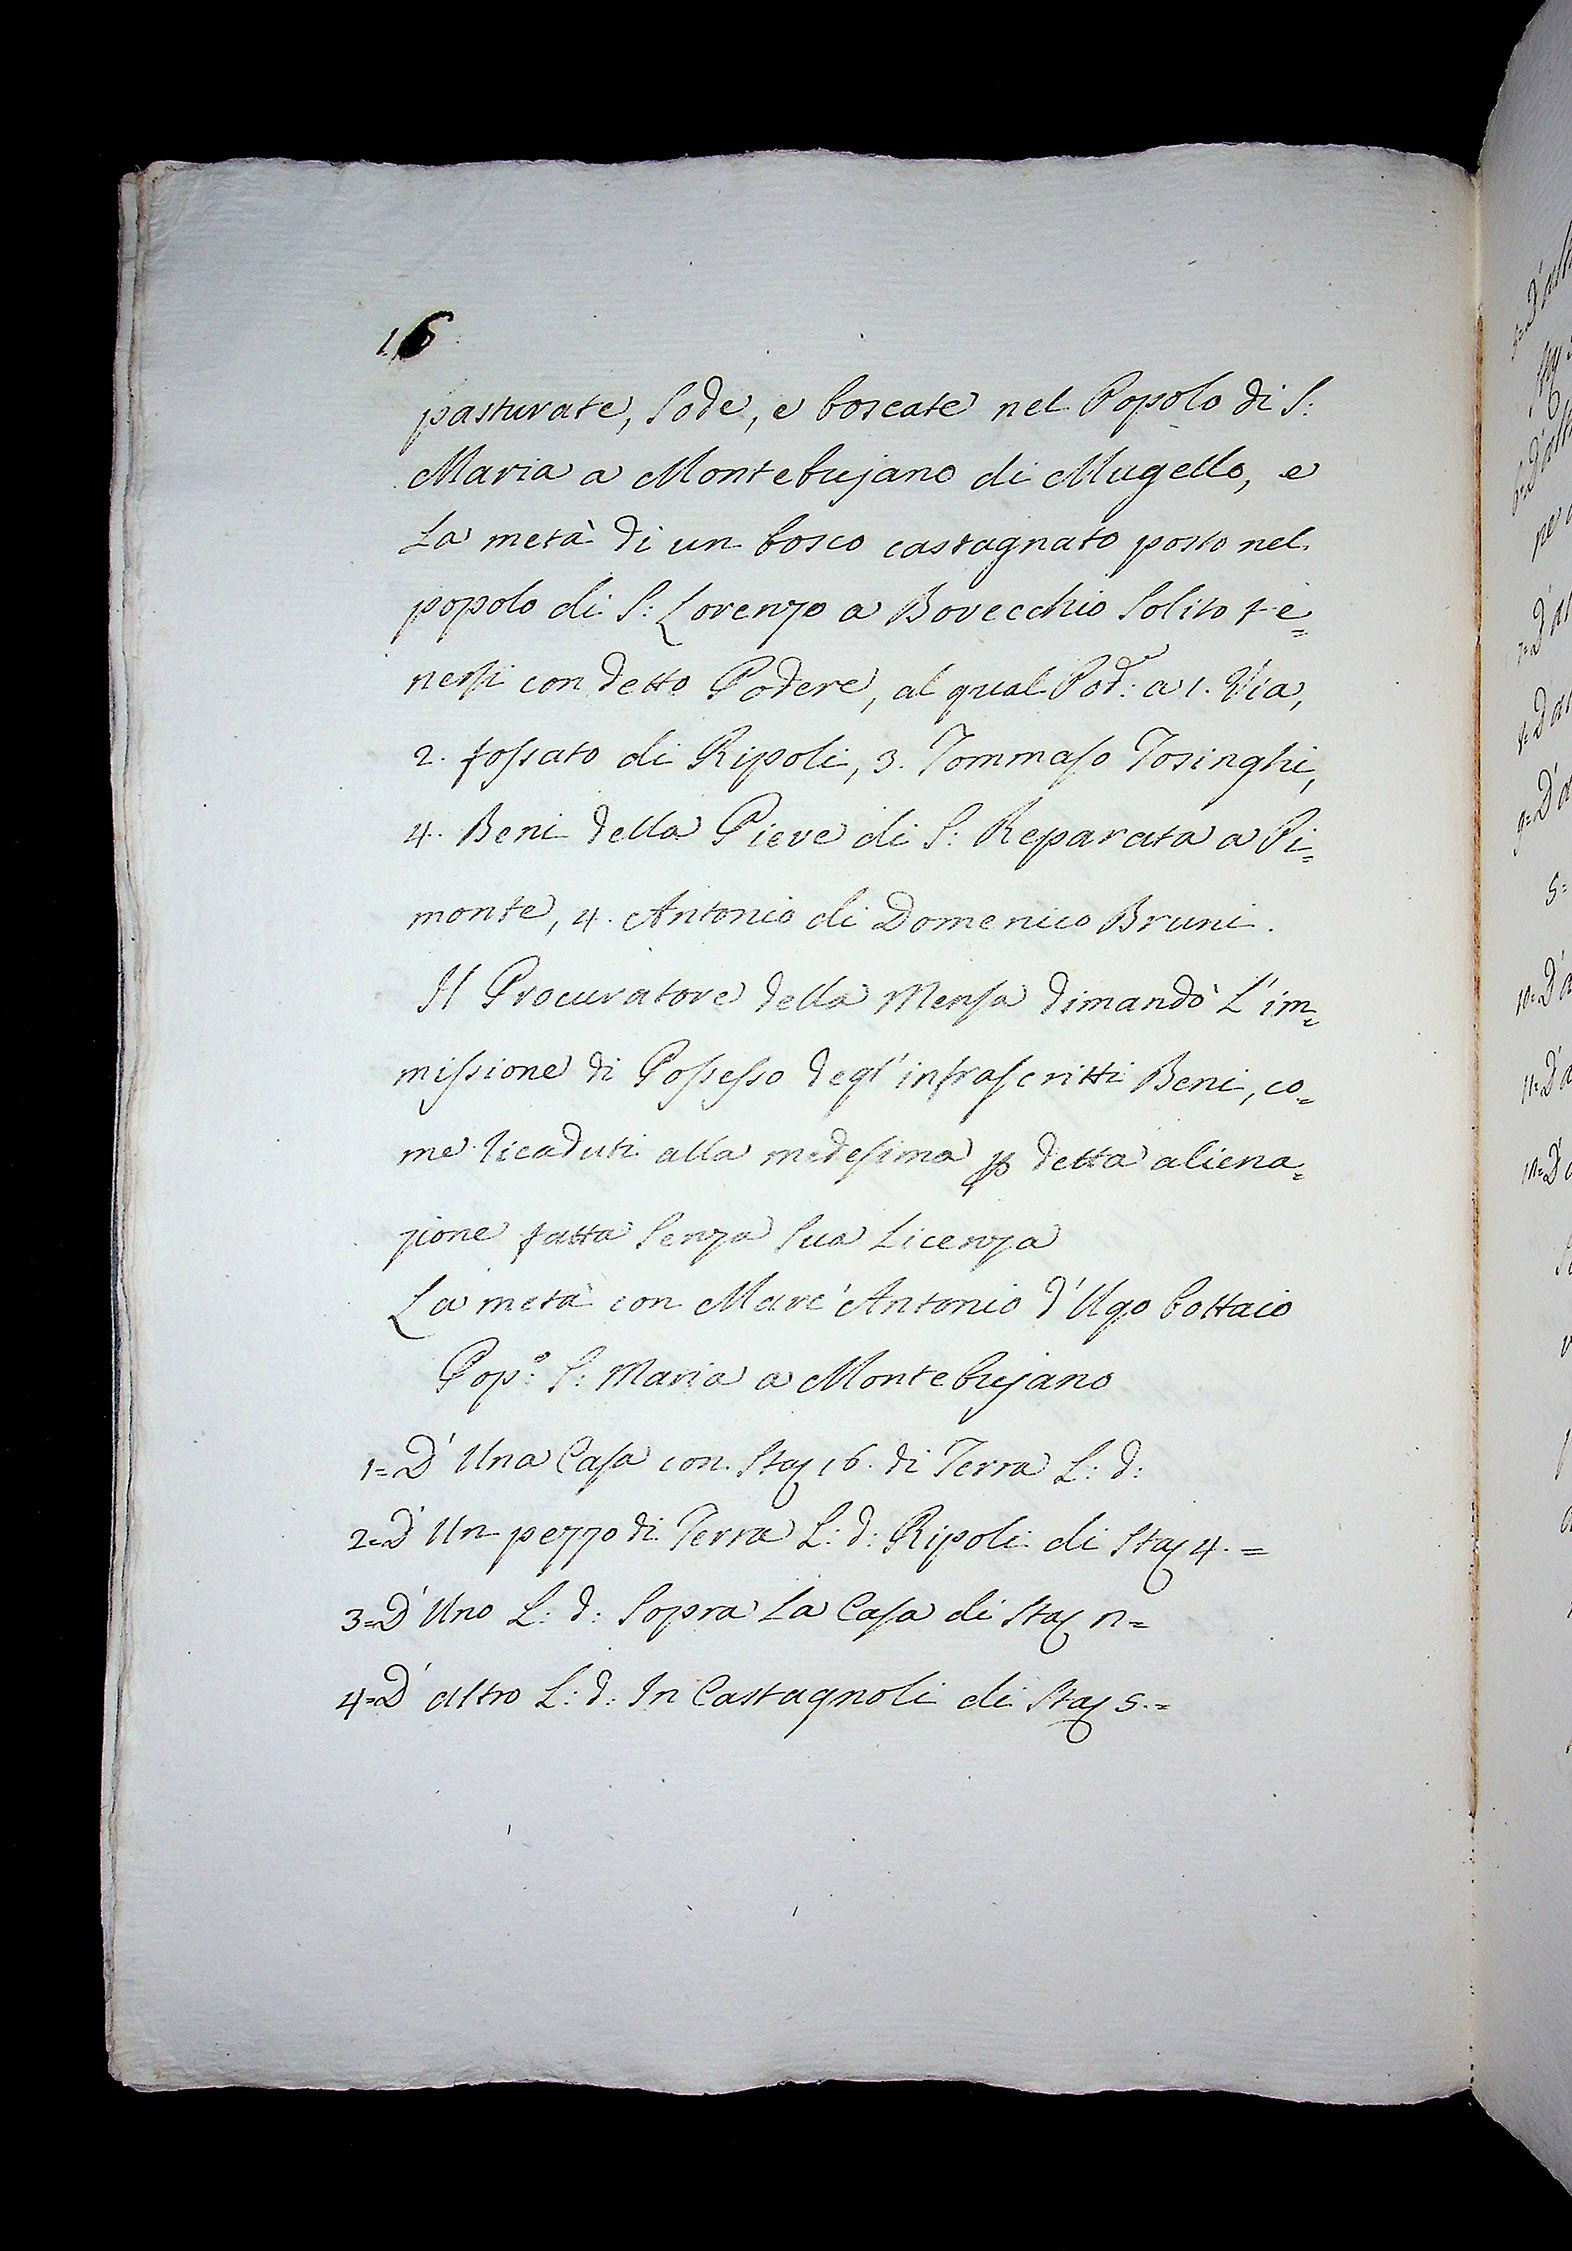 16
pasturate, Sode, e boscate nel Popolo di S:
Maria a Montebujano di Mugello, e
La metà di un bosco castagnato posto nel
popolo di S: Lorenzo a Bovecchio Solito te=
nersi con detto Podere, al qual Pod:e a 1. Via,
2. fossato di Ripoli, 3. Tommaso Tosinghi,
4. Beni della Pieve di S: Reparata a Pi=
monte, 4. Antonio di Domenico Bruni.
Il Procuratore della Mensa dimandò L'im=
missione di Possesso degl'infrascritti Beni, co=
me ricaduti alla medesima p detta aliena=
zione fatta Senza Sua Licenza
La metà con Marc'Antonio d'Ugo bottaio
Pop:o S: Maria a Montebujano
1= D'Una Casa con Staj 16. di Terra L: d:
2= D'Un pezzo di Terra L: d: Ripoli di Staj 4.=
3= D'Uno L: d: Sopra La Casa di Staj n=
4= D'altro L: d: In Castagnoli di Staj 5.=